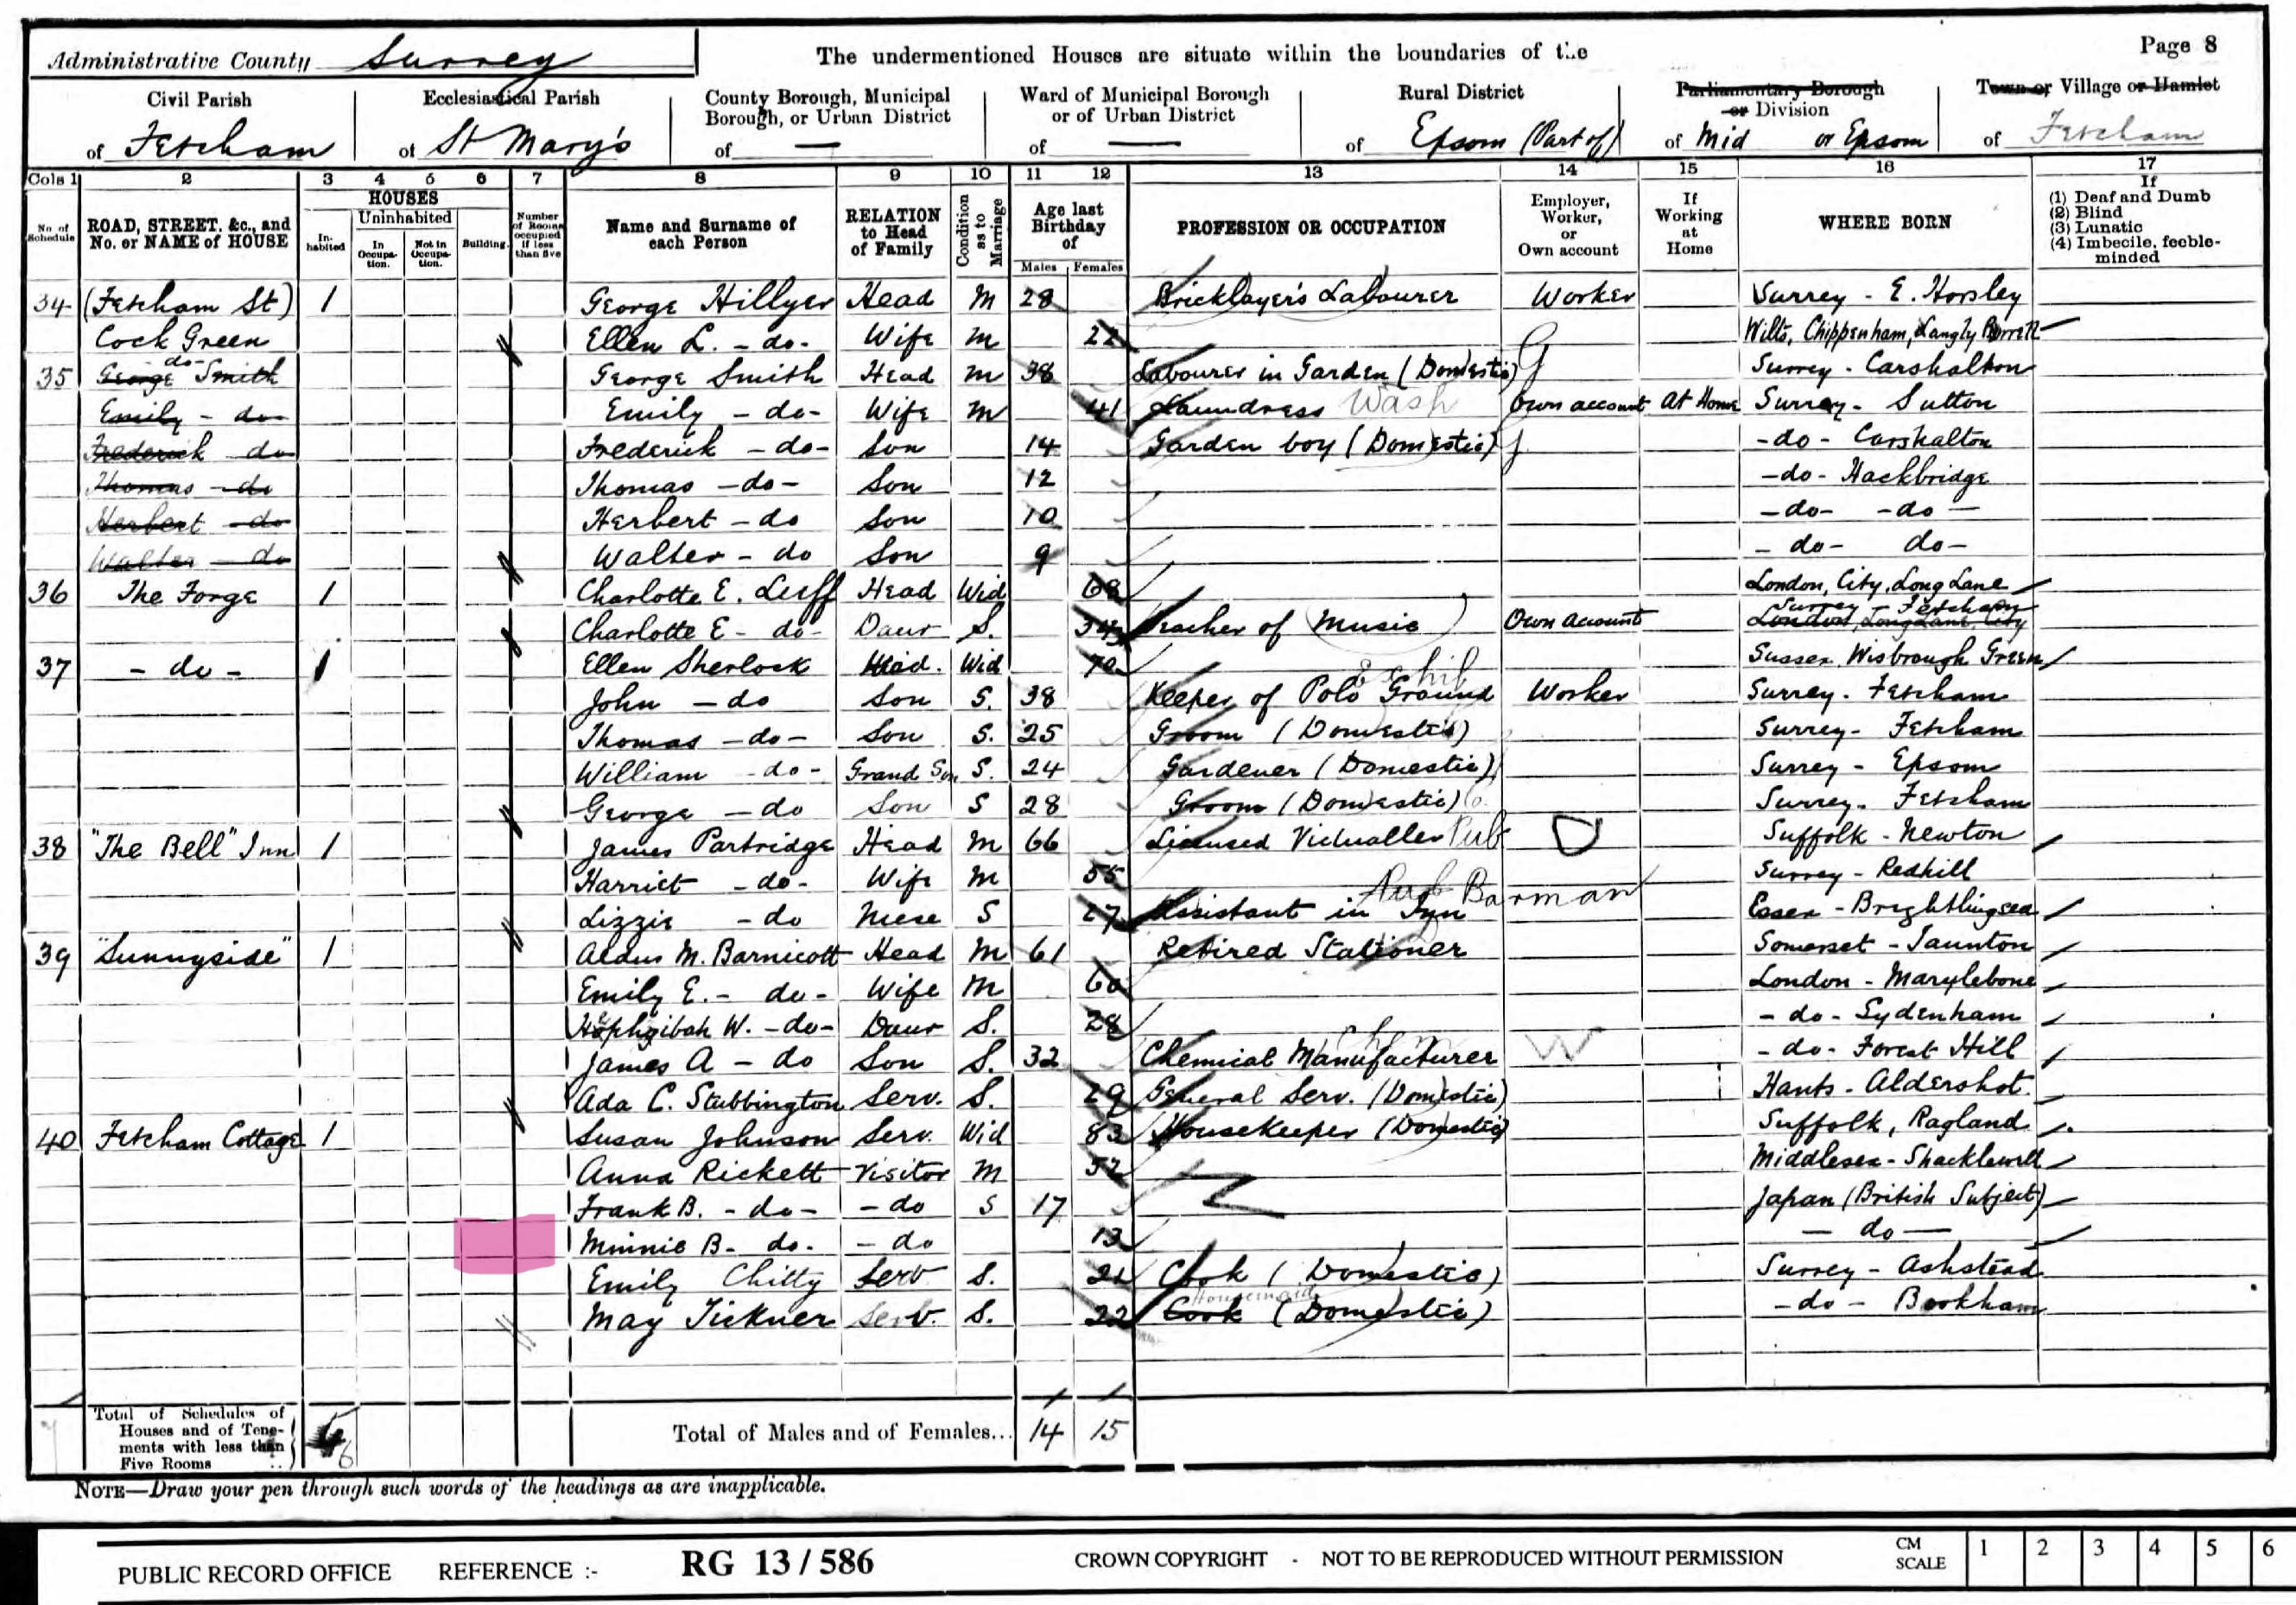 Administrative County Surrey The undermentioned Houses are situate within the boundaries of the Page 8
Civil Parish Ecclesiastical Parish County Borough, Municipal Borough, or Urban District Ward of Municipal Borough or of Urban District Rural District Parliamentary Borough or Division Town or Village or Hamlet
of Fetcham of St Mary's of — of — of Epsom (Part of) of Mid or Epsom of Fetcham
Cols 1 2 3 4 5 6 7 8 9 10 11 12 13 14 15 16 17
No. of Schedule ROAD, STREET, &c., and No. or NAME of HOUSE HOUSES Inhabited Uninhabited In Occupation. Not in Occupation. Building. Number of Rooms occupied if less than five Name and Surname of each Person RELATION to Head of Family Condition as to Marriage Age last Birthday of Males Females PROFESSION OR OCCUPATION Employer, Worker, or Own account If Working at Home WHERE BORN If (1) Deaf and Dumb (2) Blind (3) Lunatic (4) Imbecile, feeble-minded
34 (Fetcham St) 1 George Hillyer Head M 28 Bricklayer's Labourer Worker Surrey - E. Horsley
Cock Green Ellen L. - do - Wife M 22 Wilts, Chippenham, Langly Burrell
35 do George Smith George Smith Head M 38 Labourer in Garden (Domestic) G Surrey - Carshalton
Emily - do Emily - do - Wife M 41 Laundress Wash Own account At Home Surrey - Sutton
Frederick do Frederick - do - Son 14 Garden boy (Domestic) - do - Carshalton
Thomas - do Thomas - do - Son 12 - do - Hackbridge
Herbert - do Herbert - do Son 10 - do - - do -
Walter - do Walter - do Son 9 - do - do -
36 The Forge 1 Charlotte E. Luff Head Wid 68 London, City, Long Lane
Charlotte E - do - Daur S. 34 Teacher of Music Own account Surrey - Fetcham London, Long Lane, City
37 - do - 1 Ellen Sherlock Head. Wid 70 Sussex, Wisbrough Green
John - do Son S. 38 Keeper of Polo Ground Worker Surrey - Fetcham
Thomas - do - Son S. 25 Groom (Domestic) Surrey - Fetcham
William - do - Grand Son S. 24 Gardener (Domestic) Surrey - Epsom
George - do Son S 28 Groom (Domestic) Surrey - Fetcham
38 "The Bell" Inn 1 James Partridge Head M 66 Licensed Victualler Pub Suffolk - Newton
Harriet - do - Wife M 55 Surrey - Redhill
Lizzie - do Niese S 27 Assistant in Inn Pub Barman Essex - Brightlingsea
39 "Sunnyside" 1 Aldus M. Barnicott Head M 61 Retired Stationer Somerset - Taunton
Emily E. - do - Wife M 60 London - Marylebone
Hephzibah W. - do - Daur S. 28 - do - Sydenham
James A - do Son S. 32 Chemical Manufacturer chem W - do - Forest Hill
Ada C. Stubbington Serv. S. 29 General Serv. (Domestic) Hants - Aldershot
40 Fetcham Cottage 1 Susan Johnson Serv. Wid 83 Housekeeper (Domestic) Suffolk, Ragland
Anna Rickett Visitor M 52 Middlesex - Shacklewell
Frank B. - do - - do S 17 Japan (British Subject)
Minnie B - do - - do 13 - do -
Emily Chitty Serv S. 21 Cook (Domestic) Surrey - Ashstead
May Tickner Serv. S. 22 Cook Housemaid (Domestic) - do - Bookham
Total of Schedules of Houses and of Tenements with less than Five Rooms 6 Total of Males and of Females... 14 15
NOTE—Draw your pen through such words of the headings as are inapplicable.
PUBLIC RECORD OFFICE REFERENCE :- RG 13 / 586 CROWN COPYRIGHT - NOT TO BE REPRODUCED WITHOUT PERMISSION CM SCALE 1 2 3 4 5 6